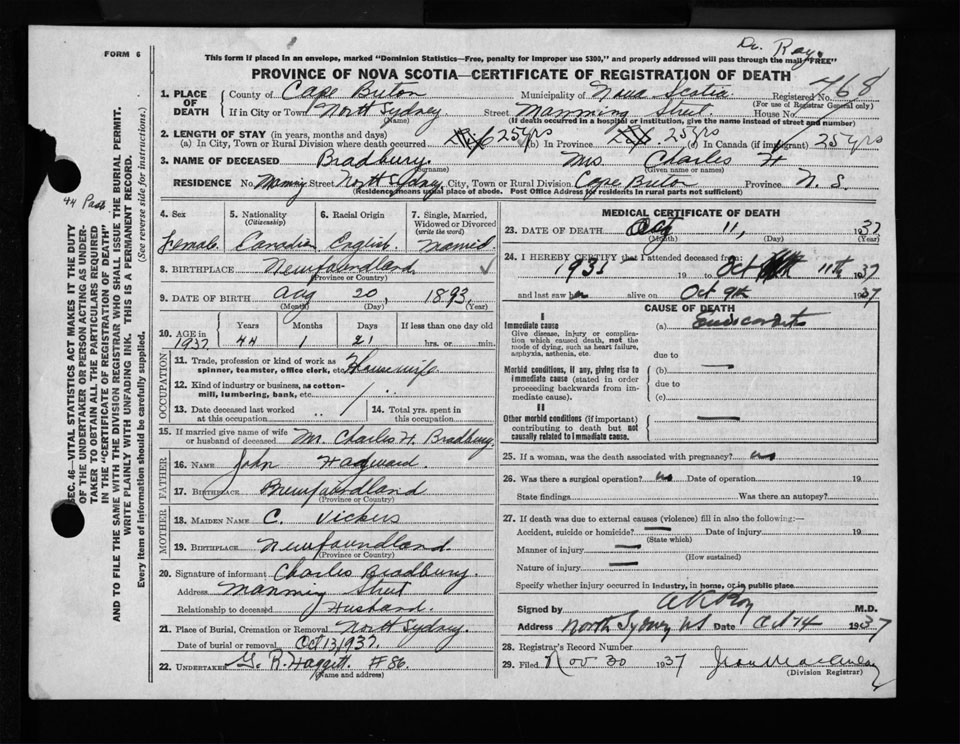 Dr. Roy
FORM 6
This form if placed in an envelope, marked "Dominion Statistics—Free, penalty for improper use $300," and properly addressed will pass through the mail "FREE"
PROVINCE OF NOVA SCOTIA—CERTIFICATE OF REGISTRATION OF DEATH
1. PLACE OF DEATH County of Cape Breton Municipality of Nova Scotia Registered No. 768
(For use of Registrar General only)
If in City or Town North Sydney Street Manning Street House No.
(Name) (If death occurred in a hospital or institution, give the name instead of street and number)
2. LENGTH OF STAY (in years, months and days)
(a) In City, Town or Rural Division where death occurred 25 yrs (b) In Province 25 yrs (c) In Canada (if immigrant) 25 yrs
3. NAME OF DECEASED Bradbury Mrs Charles H
(Surname) (Given name or names)
RESIDENCE No. Manning Street North Sydney City, Town or Rural Division Cape Breton Province N. S.
(Residence means usual place of abode. Post Office Address for Residents in rural parts not sufficient)
4. Sex Female
5. Nationality (Citizenship) Canadian
6. Racial Origin English
7. Single, Married, Widowed or Divorced (write the word) Married
8. BIRTHPLACE Newfoundland
(Province or Country)
9. DATE OF BIRTH Aug 20, 1893
(Month) (Day) (Year)
10. AGE in 1937 Years 44 Months 1 Days 21 If less than one day old hrs. or min.
OCCUPATION
11. Trade, profession or kind of work as spinner, teamster, office clerk, etc. Housewife
12. Kind of industry or business, as cotton-mill, lumbering, bank, etc.
13. Date deceased last worked at this occupation
14. Total yrs. spent in this occupation
15. If married give name of wife or husband of deceased M. Charles H. Bradbury
FATHER
16. NAME John
17. BIRTHPLACE Newfoundland
(Province or Country)
MOTHER
18. MAIDEN NAME C. Vickers
19. BIRTHPLACE Newfoundland
(Province or Country)
20. Signature of informant Charles Bradbury
Address Manning Street
Relationship to deceased Husband
21. Place of Burial, Cremation or Removal North Sydney
Date of burial or removal Oct 13, 1937
22. UNDERTAKER G. R. Haggett #86
(Name and address)
MEDICAL CERTIFICATE OF DEATH
23. DATE OF DEATH 11, 1937
(Month) (Day) (Year)
24. I HEREBY CERTIFY that I attended deceased from:
1935 19 to Oct 11th 1937
and last saw her alive on Oct 9th 1937
CAUSE OF DEATH
I
Immediate cause
Give disease, injury or complication which caused death, not the mode of dying, such as heart failure, asphyxia, asthenia, etc.
(a)
due to
Morbid conditions, if any, giving rise to immediate cause (stated in order proceeding backwards from immediate cause).
(b) —
due to
(c)
II
Other morbid conditions (if important) contributing to death but not causally related to immediate cause. —
25. If a woman, was the death associated with pregnancy? no
26. Was there a surgical operation? no Date of operation 19
State findings Was there an autopsy?
27. If death was due to external causes (violence) fill in also the following:—
Accident, suicide or homicide? — Date of injury 19
(State which)
Manner of injury —
(How sustained)
Nature of injury —
Specify whether injury occurred in industry, in home, or in public place
Signed by M.D.
Address North Sydney NS Date Oct 14 1937
28. Registrar's Record Number
29. Filed Nov 30 1937
(Division Registrar)
44 Past
SEC. 46—VITAL STATISTICS ACT MAKES IT THE DUTY OF THE UNDERTAKER OR PERSON ACTING AS UNDERTAKER TO OBTAIN ALL THE PARTICULARS REQUIRED IN THE "CERTIFICATE OF REGISTRATION OF DEATH" AND TO FILE THE SAME WITH THE DIVISION REGISTRAR WHO SHALL ISSUE THE BURIAL PERMIT.
WRITE PLAINLY WITH UNFADING INK. THIS IS A PERMANENT RECORD.
Every item of information should be carefully supplied. (See reverse side for instructions.)